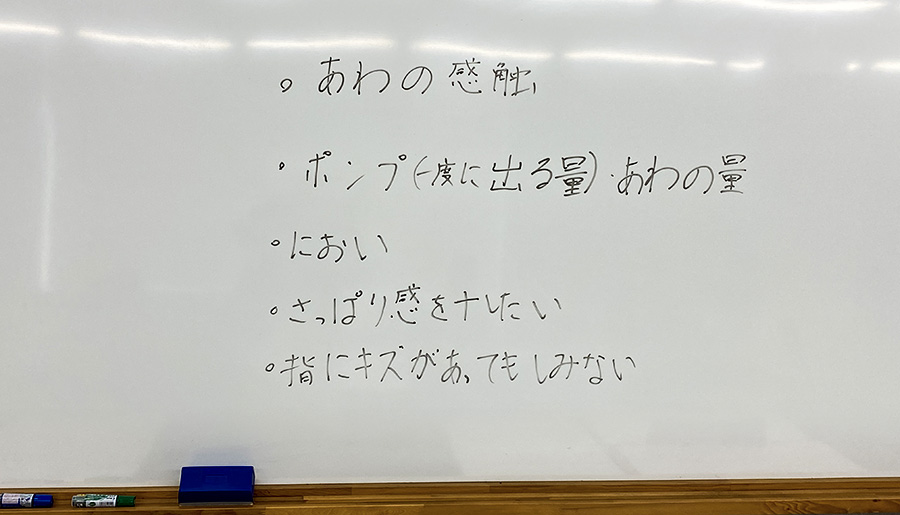 。あわの感触
・ポンプ(一度に出る量)・あわの量
。におい
。さっぱり感をナしたい
。指にキズがあってもしみない